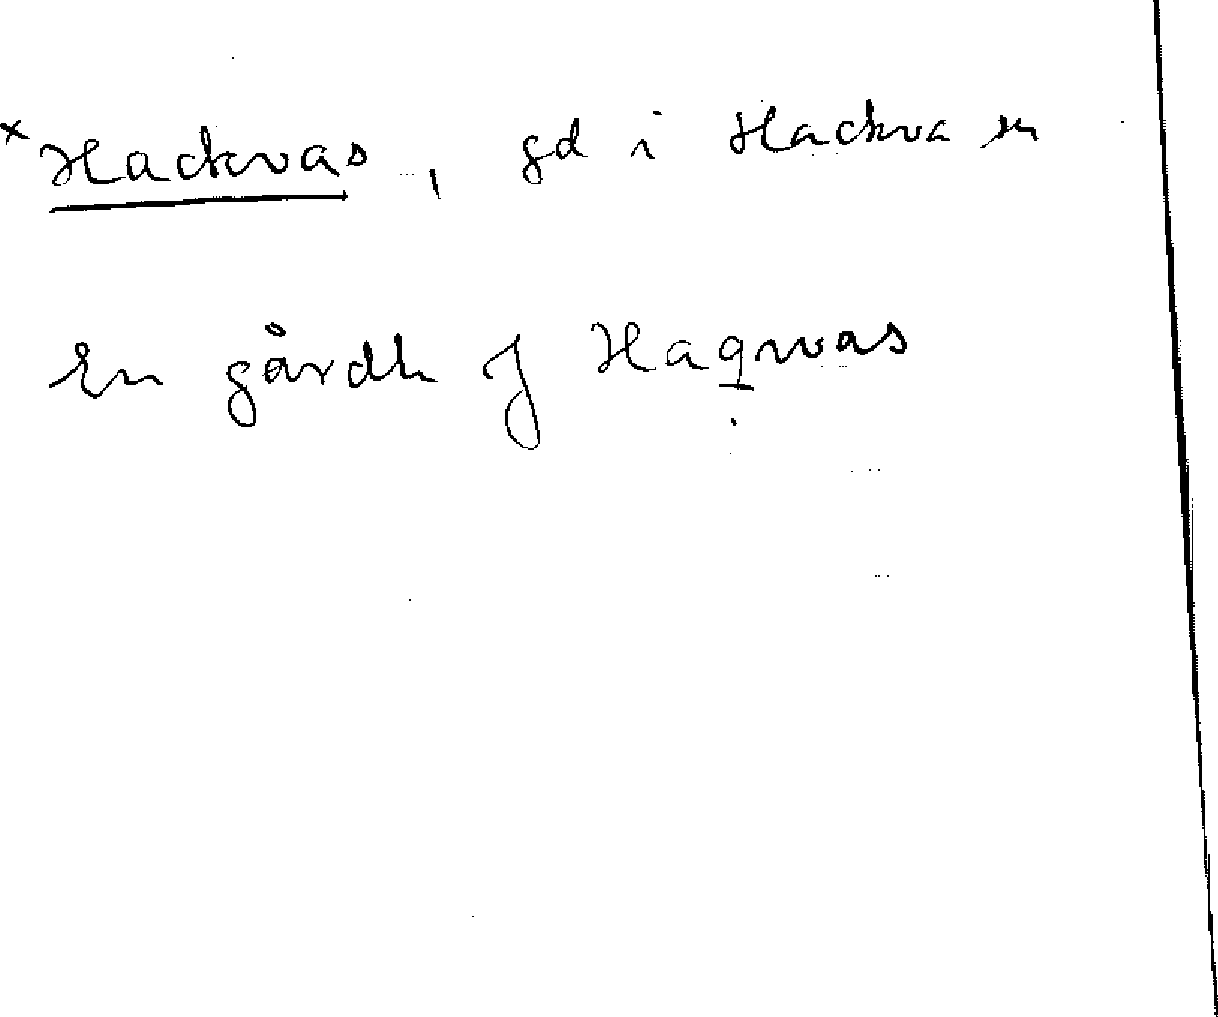 *Hackvas, gd i Hackva sn
En gårdh J Haqwas